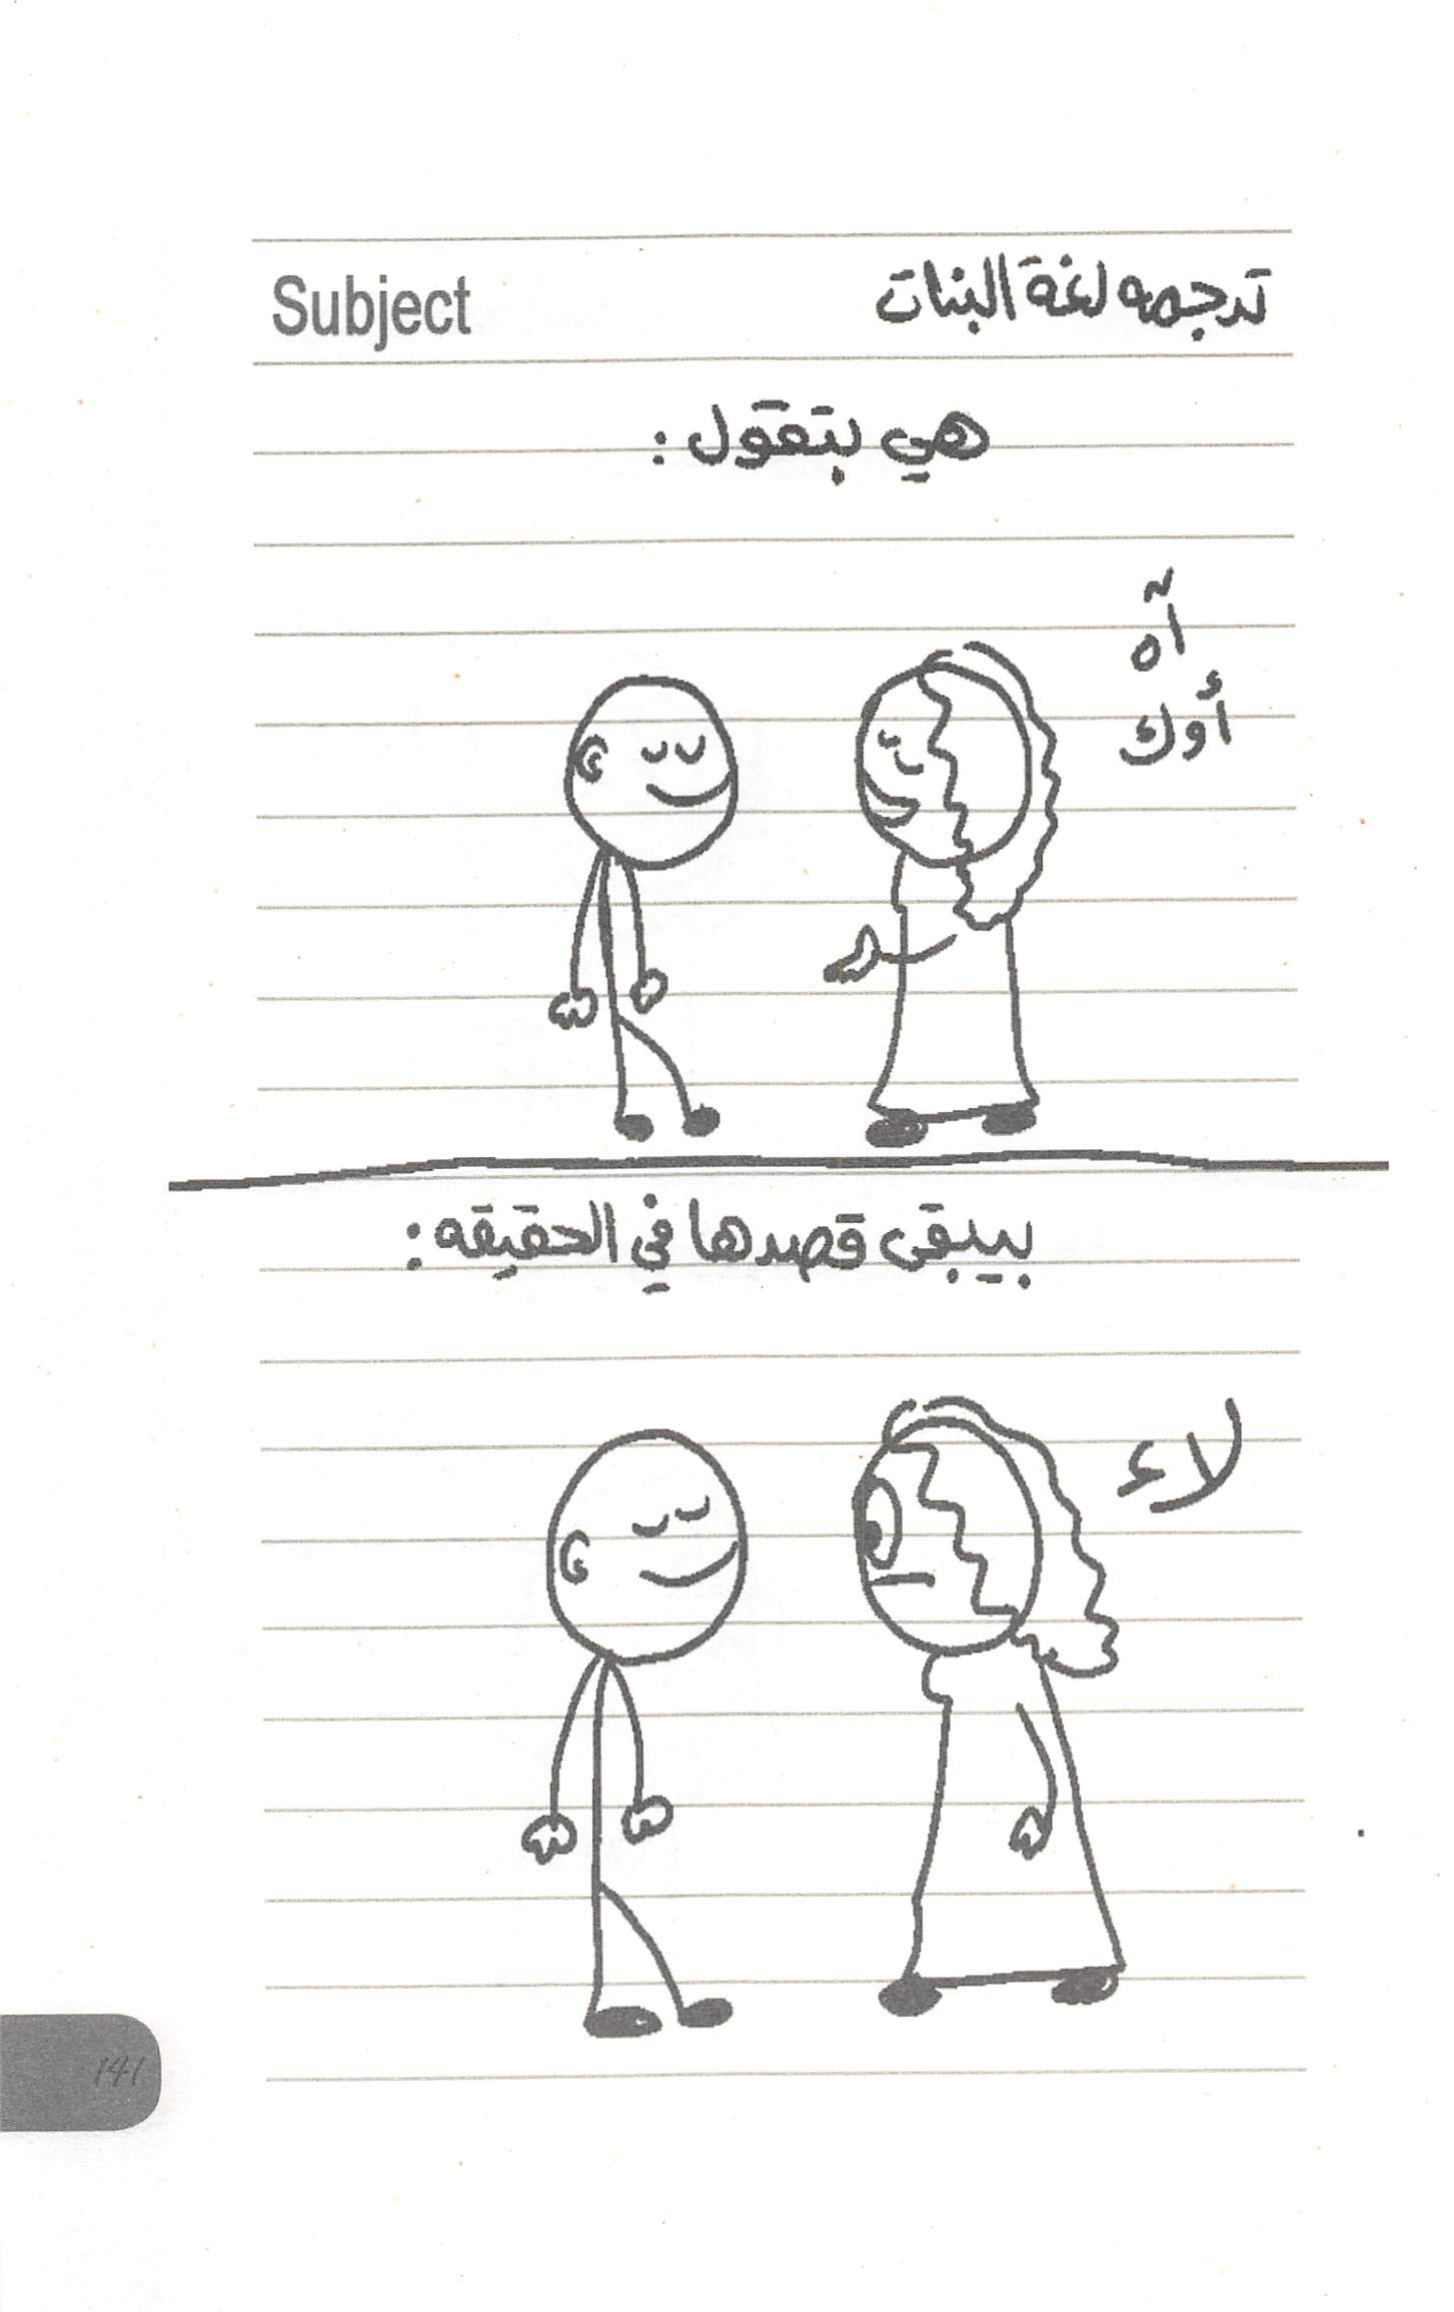 Subject
ترجمه لغة البنات
هي بتقول:
آه
أوك
بيبقى قصدها في الحقيقه:
لاء
141